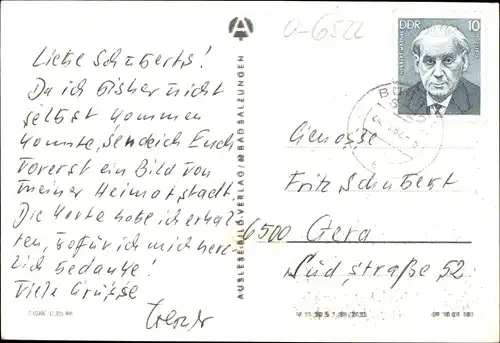 Liebe Schuberts!
Da ich bisher nicht
selbst kommen
konnte, sende ich Euch
vorerst ein Bild von
meiner Heimatstadt.
Die Karte habe ich erhal-
ten, wofür ich mich herz-
lich bedanke!
Viele Grüsse
AUSLESE-BILD-VERLAG / 82 BAD SALZUNGEN
0-6522
DDR 10
Genosse
Fritz Schubert
6500 Gera
Südstraße 52